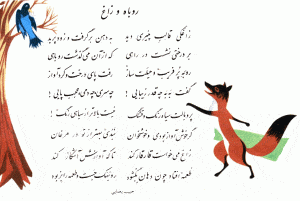 روباه و زاغ
زاغکی قالب پنیری دید به دهن برگرفت و زود پرید
بر درختی نشست در راهی که از آن می‌گذشت روباهی
روبه پرفریب و حیلت ساز رفت پای درخت و کرد آواز
گفت به به چقدر زیبایی چه سری چه دمی عجب پایی
پر و بالت سیاه رنگ و قشنگ نیست بالاتر از سیاهی رنگ
گر خوش آواز بودی و خوشخوان نبدی بهتر از تو در مرغان
زاغ می‌خواست قار قار کند تا که آوازش آشکار کند
طعمه افتاد چون دهان بگشود روبهک جست و طعمه را بربود
حبیب یغمایی